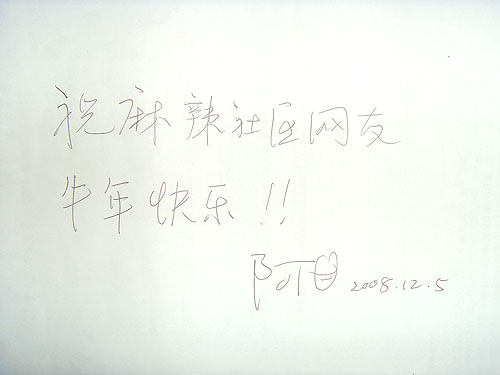 祝麻辣社区网友
牛年快乐!!
2008.12.5